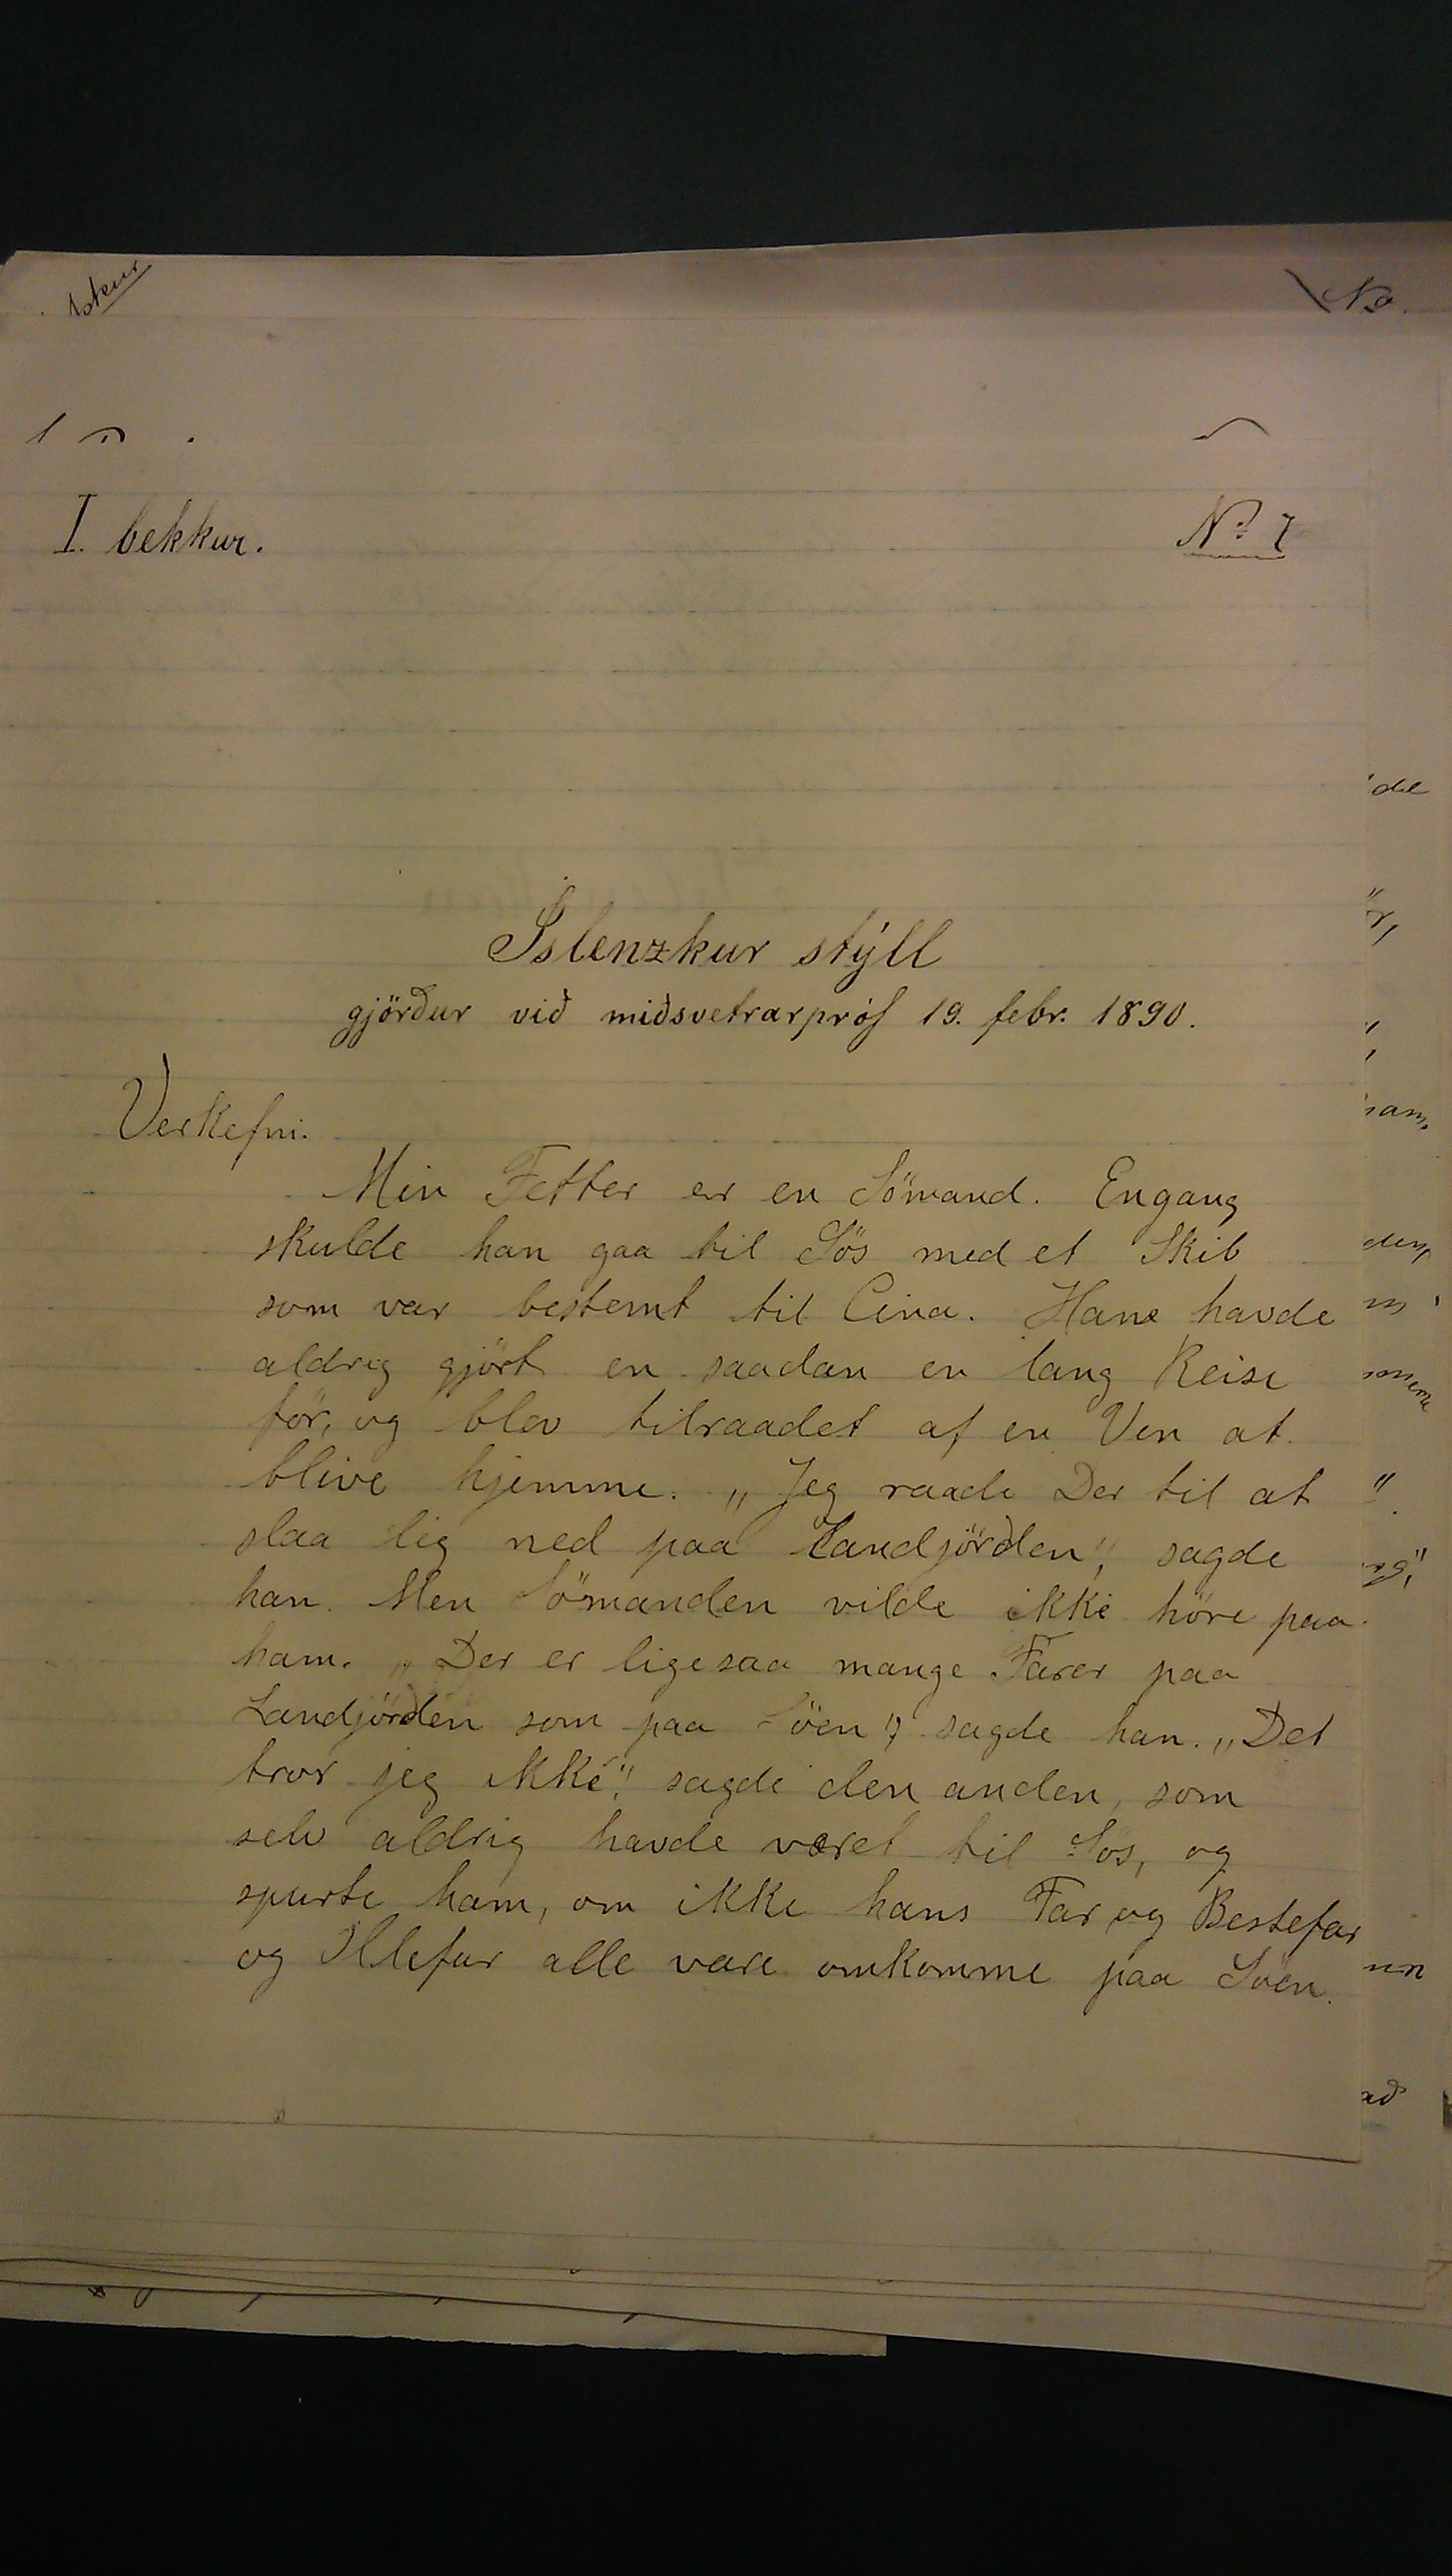 I. bekkur.
No 7
Íslenzkur stýll
gjörður við miðsvetrarpróf 19. febr. 1890.
Verkefni.
Min Fetter er en Sömand. Engang
skulde han gaa til Sös med et Skib
som var bestemt til Cina. Hans havde
aldrig gjört en saadan en lang Reise
för, og blev tilraadet af en Ven at
blive hjemme. „Jeg raade Der til at
slaa lig ned paa Landjörðen", sagde
han. Men Sömanden vilde ikke höre paa
ham. „Der er ligesaa mange Farer paa
Landjörden som paa Söen", sagde han. „Det
tror jeg ikke", sagde den anden, som
selv aldrig havde været til Sös, og
spurte ham, om ikke hans Far og Bestefar
og Illefar alle vare omkomme paa Söen.